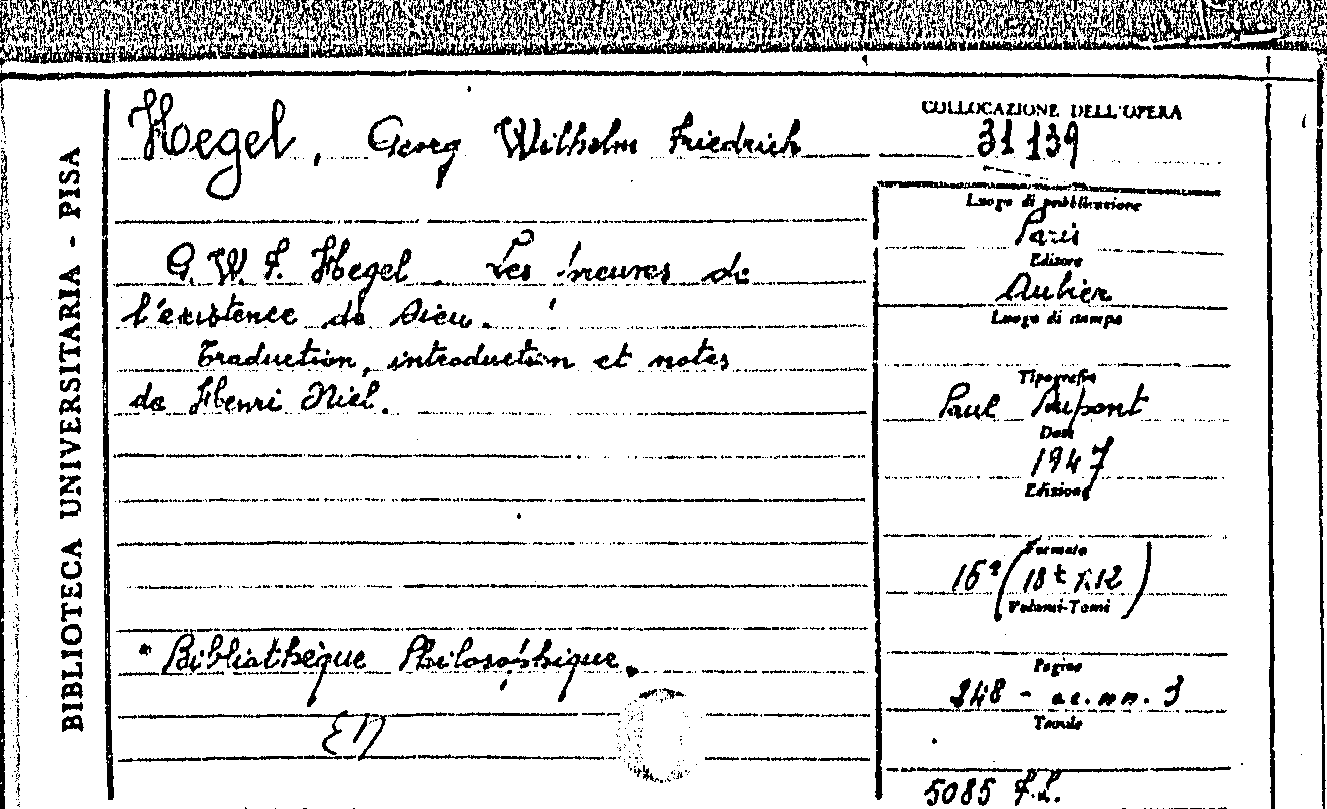 BIBLIOTECA UNIVERSITARIA - PISA
Hegel, Georg Wilhelm Friedrich
G. W. F. Hegel. Les preuves de
l'existence de Dieu.
Traduction, introduction et notes
de Henri Niel.
"Bibliothèque Philosophique.
EN
COLLOCAZIONE DELL'OPERA
31 139
Luogo di pubblicazione
Paris
Editore
Aubier
Luogo di stampa
Tipografia
Paul Dupont
Data
1947
Edizione
Formato
16° (18 x 12)
Volumi-Tomi
Pagine
248 - cc. nn. 3
Tavole
5085 F.L.